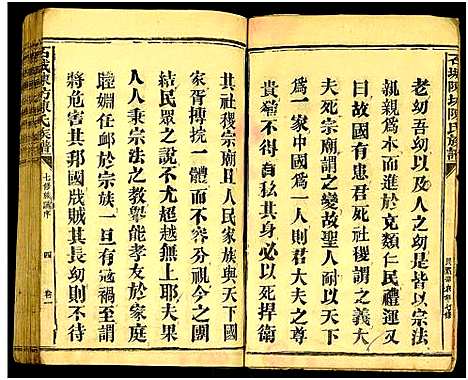 石城陳坊陳氏族譜
老幼吾幼以及人之幼是皆以宗法
親親為水而進於克類仁民禮運又
曰故國有患君死社稷謂之義大
夫死宗廟謂之變故聖人耐以天下
為一家中國為一人則自大夫之尊
貴猶不得自私其身必以死捍衛
其社稷宗廟且人民家族與天下國
家胥摶捖一體而不容分視今之國
結民眾之說不尤超越無上耶夫果
人人秉宗法之教舉能孝友於家庭
睦婣任卹於宗族一旦有寇禍至謂
將危害其邦國戕賊其長幼則不待
石城陳坊陳氏族譜
七修族譜序
四
卷一